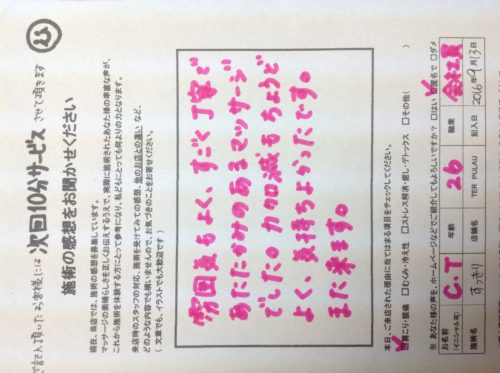 ご記入頂いたお客様には 次回10分サービス させて頂きます
施術の感想をお聞かせください
現在、当店では、施術の感想を募集しています。
マッサージの素晴らしさを正しくお伝えするうえで、実際に施術されたあなた様の率直な声が、
これから施術を体験する方にとって参考になり、私どもにとっても何よりの力となります。
来店時のスタッフの対応、施術を受けてみての感想、他のお店との違い など、
どのような内容でも構いませんので、お気づきのことをお寄せください。
( 文章でも、イラストでも大歓迎です )
雰囲気もよく、すごく丁寧で
あたたかみのあるマッサージ
でした。力加減もちょうど
よく、気持ちよかったです。
また来ます。
本日、ご来店された理由に当てはまる項目をチェックしてください。
肩こり・腰痛 □むくみ・冷え性 □ストレス解消・癒し・デトックス □その他(
※ あなた様の声を、ホームページなどでご紹介してもよろしいですか? □はい □匿名で □ダメ
お名前 (イニシャル可) C.T 年齢 26 職業 会社員
施術名 すっきり 店舗名 TER PULAU 記入日 2016年9月13日